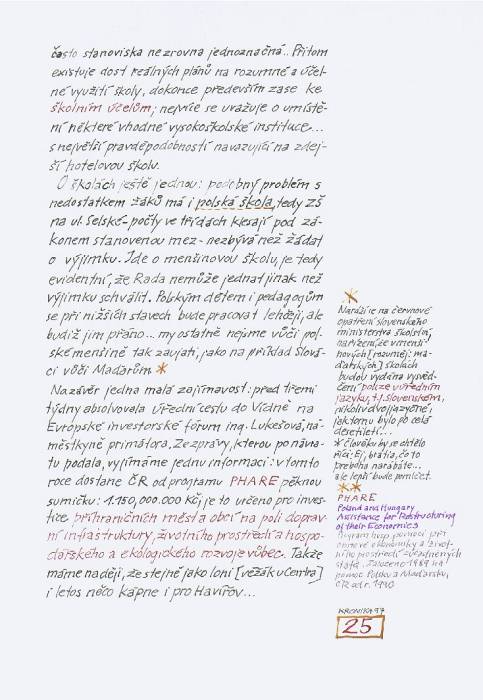 často stanoviska ne zrovna jednoznačná.. Přitom
existuje dost reálných plánů na rozumné a účel-
né využití školy, dokonce především zase ke
školním účelům; nejvíce se uvažuje o umístě-
ní některé vhodné vysokoškolské instituce...
s největší pravděpodobností navazující na zdej-
ší hotelovou školu.
O školách ještě jednou: podobný problém s
nedostatkem žáků má i polská škola, tedy ZŠ
na ul. Selské - počty ve třídách klesají pod zá-
konem stanovenou mez - nezbývá než žádat
o výjimku. Jde o menšinovou školu, je tedy
evidentní, že Rada nemůže jednat jinak než
výjimku schválit. Polským dětem i pedagogům
se při nižších stavech bude pracovat lehčeji, ale
budiž jim přáno... my ostatně nejsme vůči pol-
ské menšině tak zaujatí, jako na příklad Slová-
ci vůči Maďarům *
Na závěr jedna malá zajímavost: před třemi
týdny absolvovala úřední cestu do Vídně na
Evropské investorské fórum ing. Lukešová, ná-
městkyně primátora. Ze zprávy, kterou po návra-
tu podala, vyjímáme jednu informaci: v tomto
roce dostane ČR od programu PHARE pěknou
sumičku: 1.150,000.000 Kč, je to určeno pro inves-
tice příhraničních měst a obcí na poli doprav-
ní infrastruktury, životního prostředí a hospo-
dářského a ekologického rozvoje vůbec. Takže
máme naději, že stejně jako loni [věžák u Centra]
i letos něco kápne i pro Havířov...
*
Naráží se na červnové
opatření slovenského
ministerstva školství,
nařízení, že v menši-
nových [rozuměj: ma-
ďarských] školách
budou vydána vysvěd-
čení pouze v úředním
jazyku, t.j. slovenském,
nikoliv dvojjazyčné,
jak tomu bylo po celá
desetiletí...
* člověku by se chtělo
říci: Ej, bratia, čo to
preboha narábäte...
ale lepší bude pomlčet.
**
PHARE
Poland and Hungary
Assistance for Restructuring
of their Economics
Program hosp. pomoci při
obnově ekonomiky a život-
ního prostředí
států. Založeno 1989 na
pomoc Polsku a Maďarsku,
ČR od r. 1990
KRONIKA 97
25